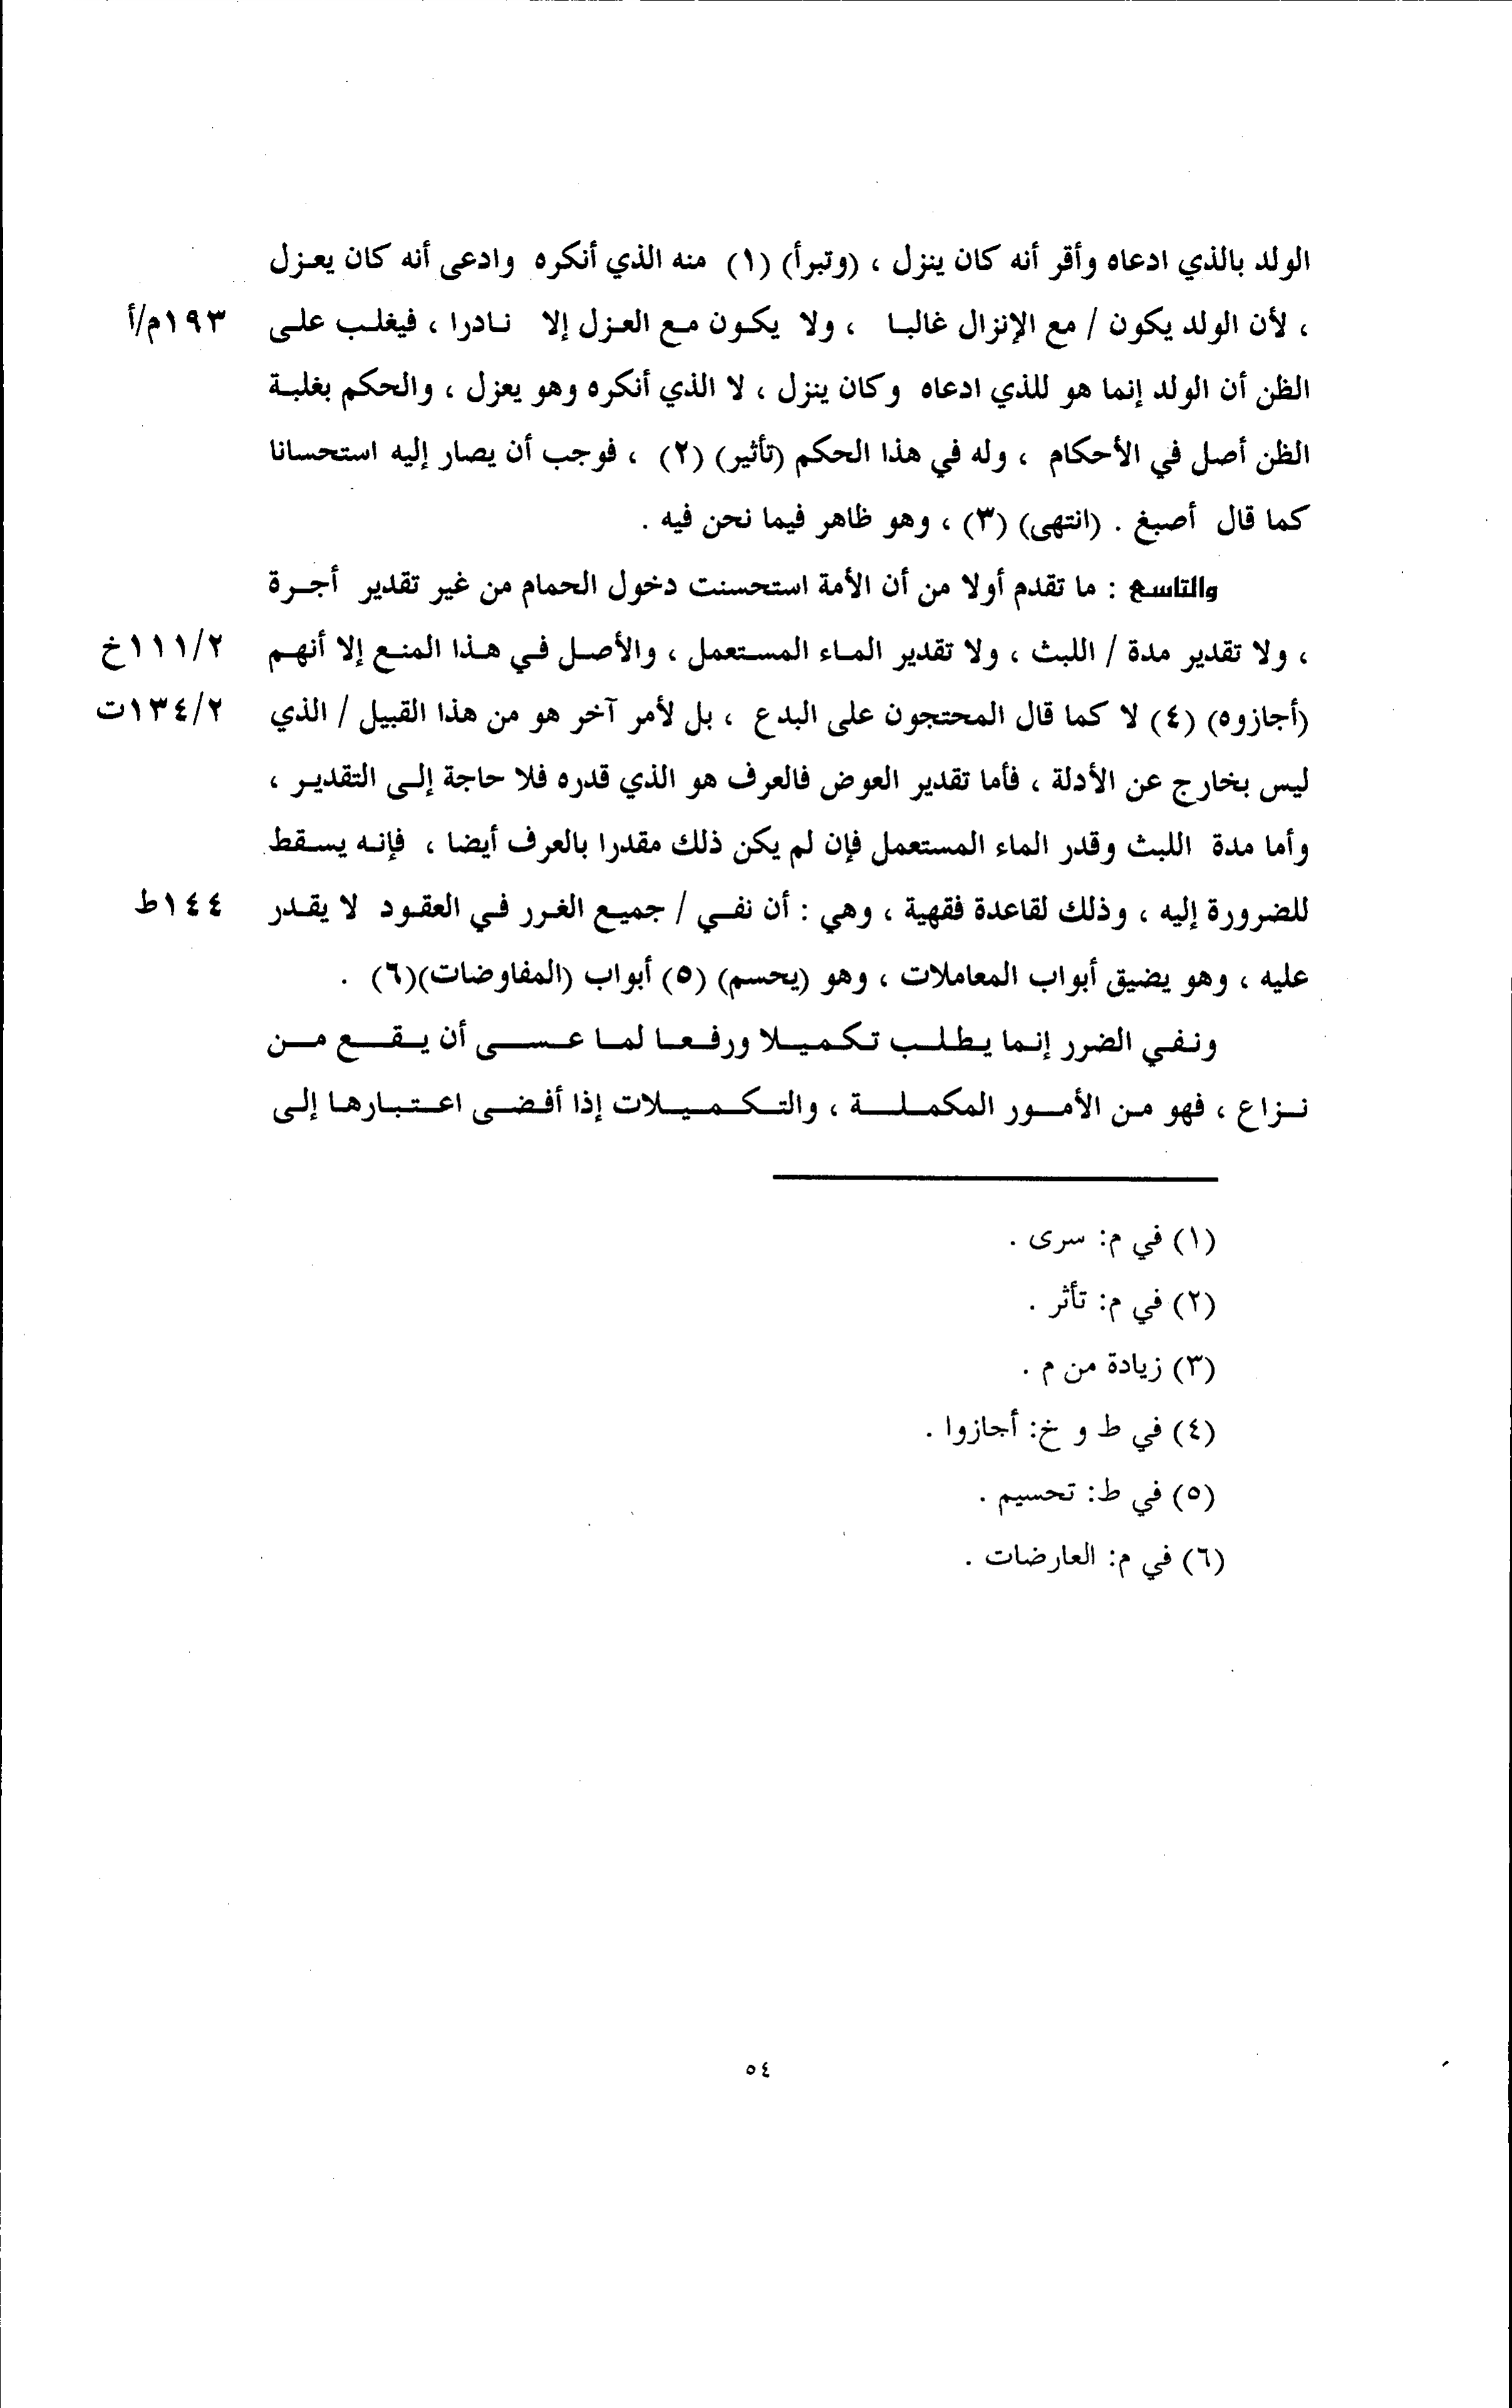 الولد بالذي ادعاه وأقر أنه كان ينزل ، (وتبرأ) (١) منه الذي أنكره وادعى أنه كان يعزل
، لأن الولد يكون / مع الإنزال غالبا ، ولا يكون مع العزل إلا نادرا ، فيغلب على ١٩٣م/أ
الظن أن الولد إنما هو للذي ادعاه وكان ينزل ، لا الذي أنكره وهو يعزل ، والحكم بغلبة
الظن أصل في الأحكام ، وله في هذا الحكم (تأثير) (٢) ، فوجب أن يصار إليه استحسانا
كما قال أصبغ . (انتهى) (٣) ، وهو ظاهر فيما نحن فيه .
والتاسع : ما تقدم أولا من أن الأمة استحسنت دخول الحمام من غير تقدير أجرة
، ولا تقدير مدة / اللبث ، ولا تقدير الماء المستعمل ، والأصل في هذا المنع إلا أنهم ١١١/٢خ
(أجازوه) (٤) لا كما قال المحتجون على البدع ، بل لأمر آخر هو من هذا القبيل / الذي ١٣٤/٢ت
ليس بخارج عن الأدلة ، فأما تقدير العوض فالعرف هو الذي قدره فلا حاجة إلى التقدير ،
وأما مدة اللبث وقدر الماء المستعمل فإن لم يكن ذلك مقدرا بالعرف أيضا ، فإنه يسقط
للضرورة إليه ، وذلك لقاعدة فقهية ، وهي : أن نفي / جميع الغرر في العقود لا يقدر ١٤٤ط
عليه ، وهو يضيق أبواب المعاملات ، وهو (يحسم) (٥) أبواب (المفاوضات)(٦) .
ونفي الضرر إنما يطلب تكميلا ورفعا لما عسى أن يقع من
نزاع ، فهو من الأمور المكملة ، والتكميلات إذا أفضى اعتبارها إلى
(١) في م: سرى .
(٢) في م: تأثر .
(٣) زيادة من م .
(٤) في ط و خ: أجازوا .
(٥) في ط: تحسيم .
(٦) في م: العارضات .
٥٤